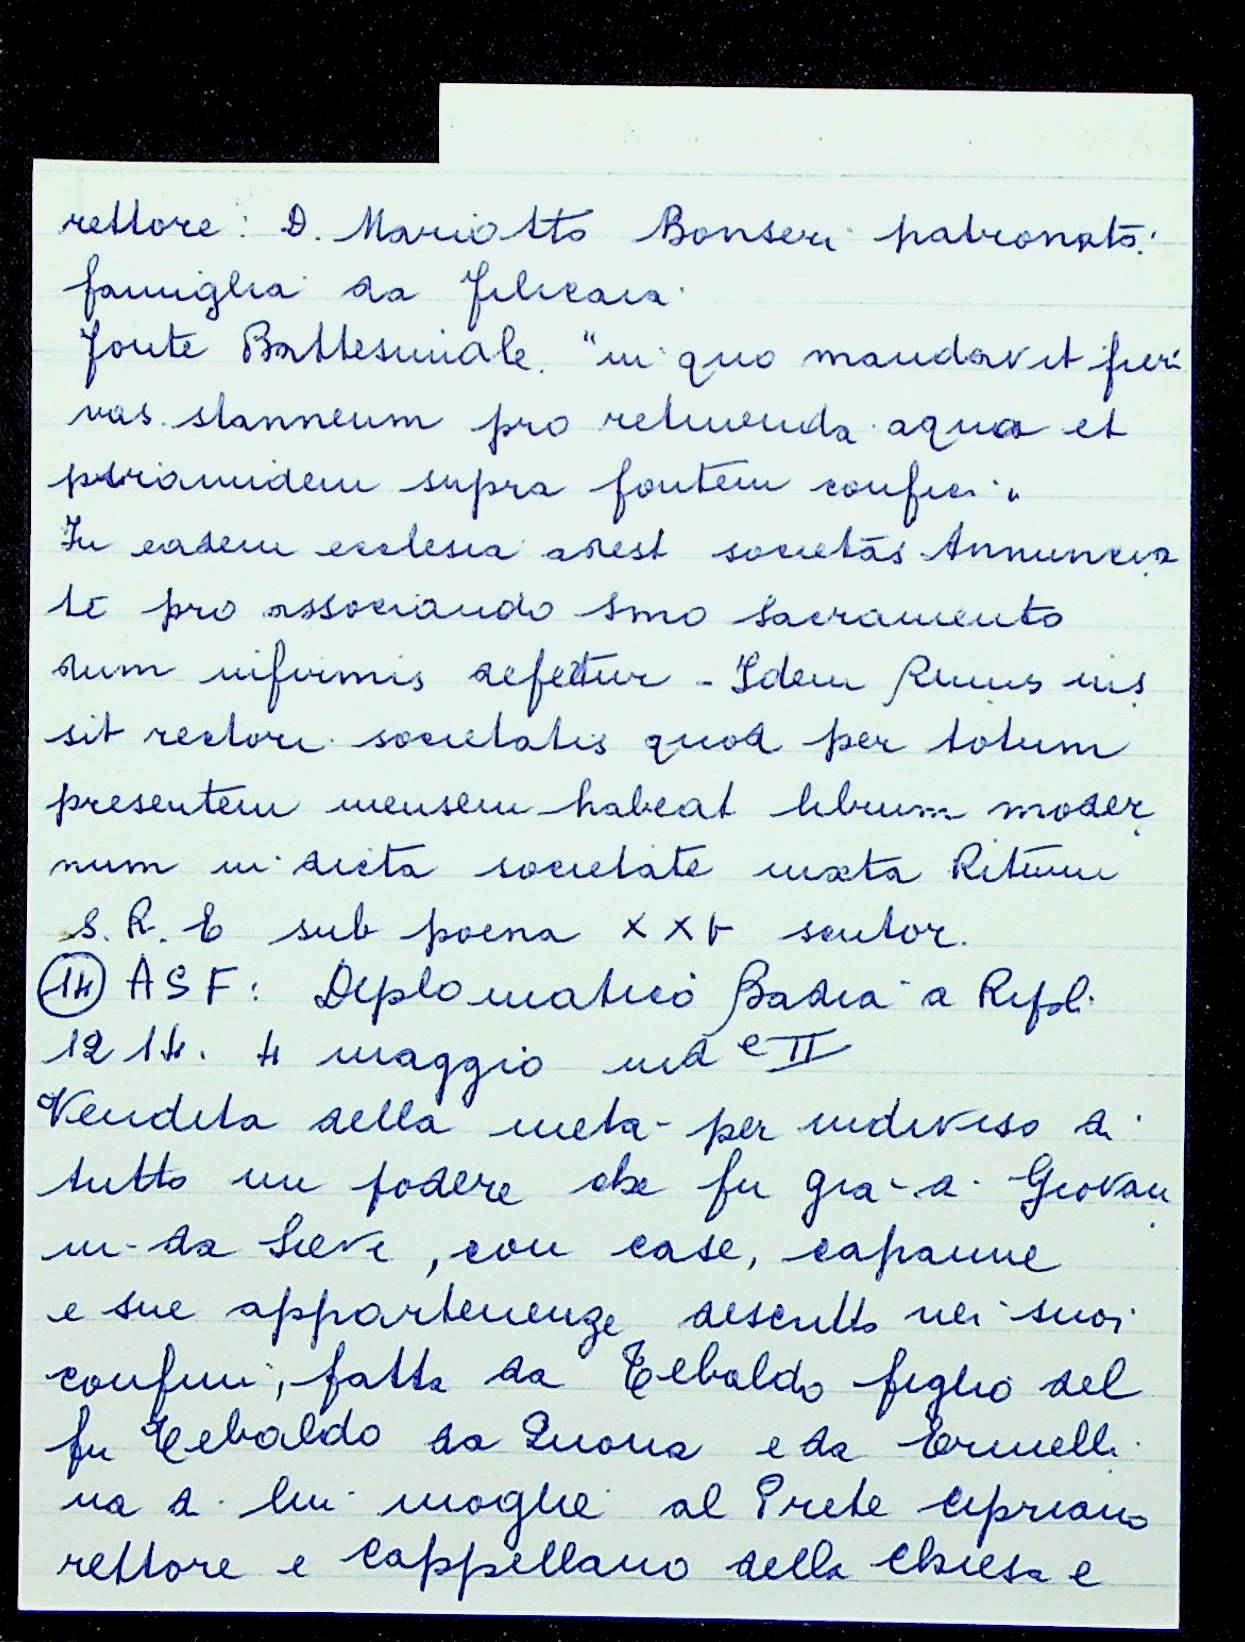 rettore: D. Mariotto Bonseri patronato:
famiglia da Filicaia
Fonte Battesimale. "in quo mandavit fieri
vas stanneum pro retinenda aqua et
piramidem supra fontem confici"
In eadem ecclesia adest societas Annuncia
te pro associando Smo Sacramento
dum infirmis defertur - Idem Rmus ius
sit rectori societatis quod per totum
presentem mensem habeat librum moder
num in dicta societate iuxta Ritum
S. R. E sub poena XXV scutor.
(14) ASF: Diplomatico Badia a Ripoli
1214. 4 maggio ind e II
Vendita della metà per indiviso di
tutto un podere che fu già di Giovan
ni da Sieve, con case, capanne
e sue appartenenze descritto nei suoi
confini, fatta da Tebaldo figlio del
fu Tebaldo da Quona e da Ermelli
na di lui moglie al Prete Cipriano
rettore e Cappellano della Chiesa e